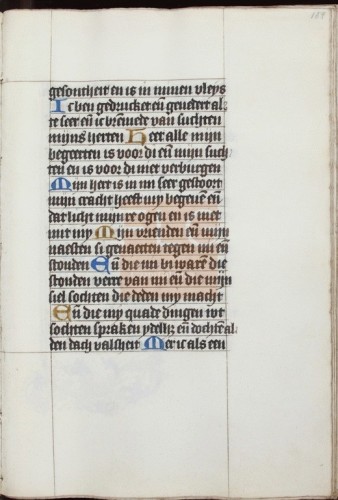 gesontheit en is in minen vleys
Ic ben gedrucket en̄ geneder al
te seer en̄ ic bremede van suchten
mijns herten Heer alle mijn
begeerten is voor di en̄ mijn such
ten en is voor di niet verborgen
Mijn hert is in mi seer gestoort
mijn cracht heeft my begeuen en̄
dat licht mijnre ogen en is niet
mit my Mijn vrienden en̄ mijn
naesten si genaecten tegen mi en̄
stonden En̄ die mi bi waren die
stonden verre van mi en̄ die mijn
siel sochten die deden my macht
En̄ die my quade dingen wt
sochten spraken ydelhz en̄ dochten al
den dach valsheit Mer ic als een